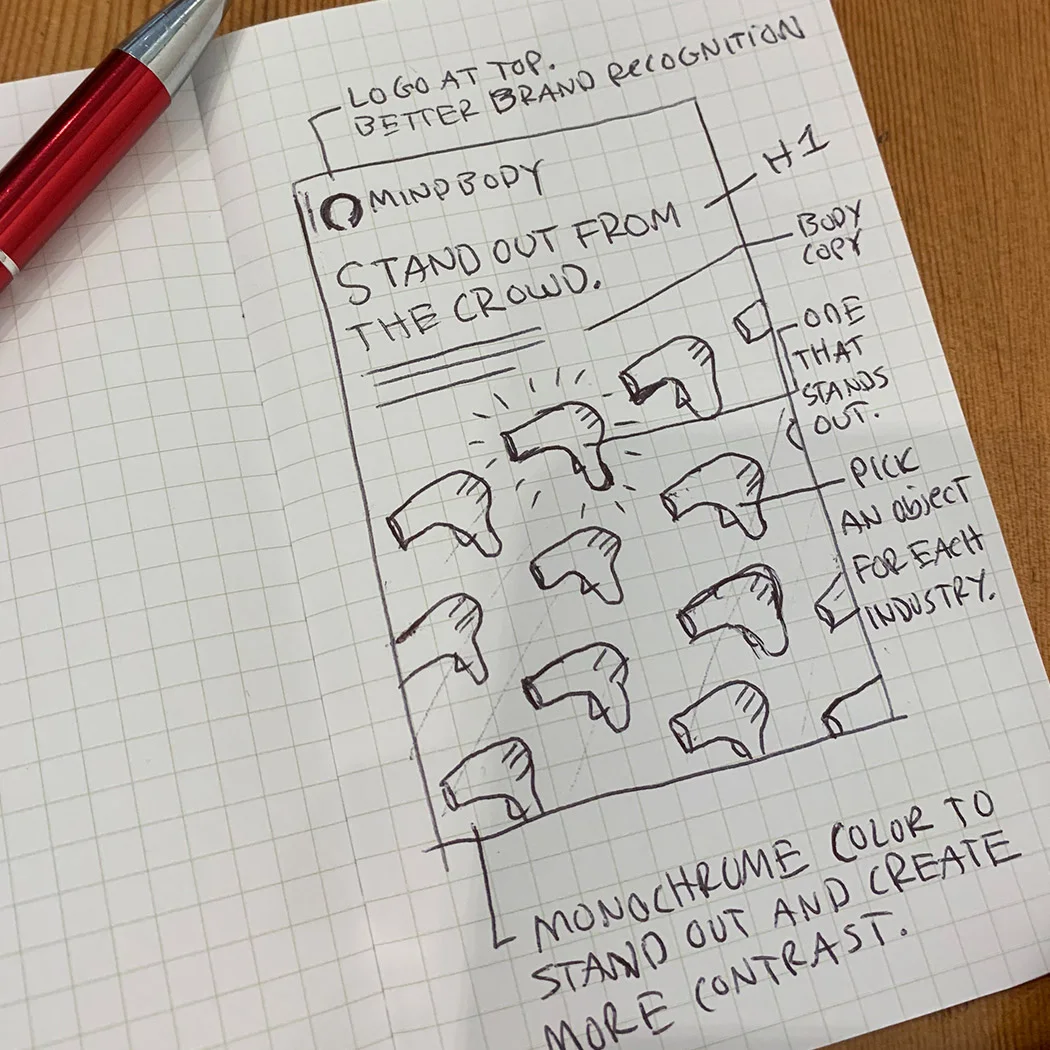 LOGO AT TOP.
BETTER BRAND RECOGNITION
MINDBODY
H1
STAND OUT FROM
THE CROWD.
BODY
COPY
ONE
THAT
STANDS
OUT.
PICK
AN OBJECT
FOR EACH
INDUSTRY.
MONOCHROME COLOR TO
STAND OUT AND CREATE
MORE CONTRAST.